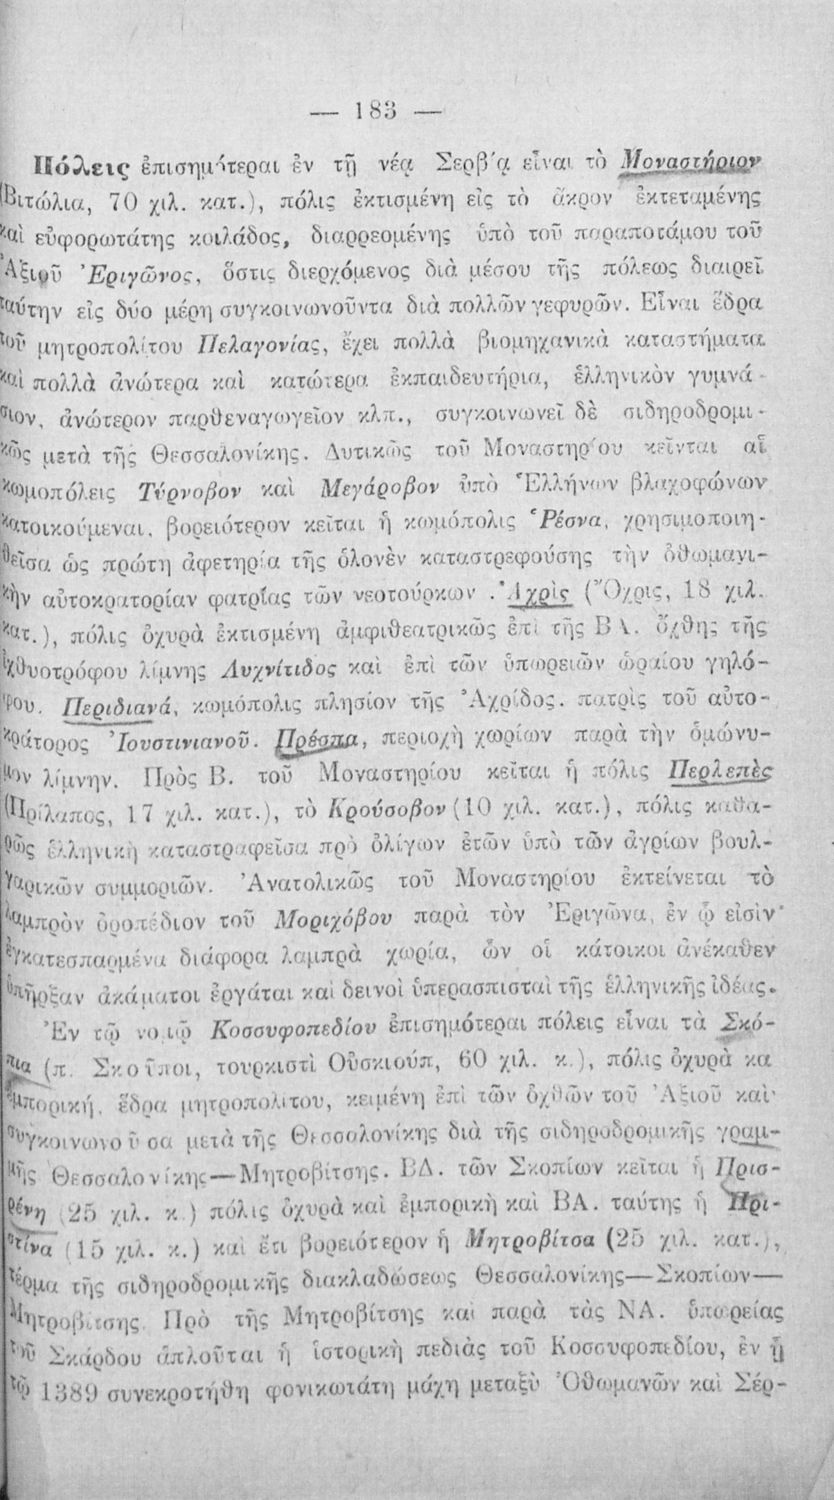 — 183 —
Πόλεις ἐπισημότεραι ἐν τῇ νέᾳ Σερβίᾳ εἶναι τὸ Μοναστήριον
(Βιτώλια, 70 χιλ. κατ.), πόλις ἐκτισμένη εἰς τὸ ἄκρον ἐκτεταμένης
καὶ εὐφορωτάτης κοιλάδος, διαρρεομένης ὑπὸ τοῦ παραποτάμου τοῦ
Ἀξιοῦ Ἐριγῶνος, ὅστις διερχόμενος διὰ μέσου τῆς πόλεως διαιρεῖ
ταύτην εἰς δύο μέρη συγκοινωνοῦντα διὰ πολλῶν γεφυρῶν. Εἶναι ἕδρα
τοῦ μητροπολίτου Πελαγονίας, ἔχει πολλὰ βιομηχανικὰ καταστήματα
καὶ πολλὰ ἀνώτερα καὶ κατώτερα ἐκπαιδευτήρια, ἑλληνικὸν γυμνά-
σιον, ἀνώτερον παρθεναγωγεῖον κλπ., συγκοινωνεῖ δὲ σιδηροδρομι-
κῶς μετὰ τῆς Θεσσαλονίκης. Δυτικῶς τοῦ Μοναστηρίου κεῖνται αἱ
κωμοπόλεις Τύρνοβον καὶ Μεγάροβον ὑπὸ Ἑλλήνων βλαχοφώνων
κατοικούμεναι, βορειότερον κεῖται ἡ κωμόπολις Ῥέσνα, χρησιμοποιη-
θεῖσα ὡς πρώτη ἀφετηρία τῆς ὁλονὲν καταστρεφούσης τὴν ὀθωμανι-
κὴν αὐτοκρατορίαν φατρίας τῶν νεοτούρκων. Ἀχρὶς (Ὄχρις, 18 χιλ.
κατ.), πόλις ὀχυρὰ ἐκτισμένη ἀμφιθεατρικῶς ἐπὶ τῆς ΒΑ. ὄχθης τῆς
ἰχθυοτρόφου λίμνης Λυχνίτιδος καὶ ἐπὶ τῶν ὑπωρειῶν ὡραίου γηλό-
φου. Περιδιανά, κωμόπολις πλησίον τῆς Ἀχρίδος. πατρὶς τοῦ αὐτο-
κράτορος Ἰουστινιανοῦ. Πρέσπα, περιοχὴ χωρίων παρὰ τὴν ὁμώνυ-
μον λίμνην. Πρὸς Β. τοῦ Μοναστηρίου κεῖται ἡ πόλις Περλεπὲς
(Πρίλαπος, 17 χιλ. κατ.), τὸ Κρούσοβον (10 χιλ. κατ.), πόλις καθα-
ρῶς ἑλληνικὴ καταστραφεῖσα πρὸ ὀλίγων ἐτῶν ὑπὸ τῶν ἀγρίων βουλ-
γαρικῶν συμμοριῶν. Ἀνατολικῶς τοῦ Μοναστηρίου ἐκτείνεται τὸ
λαμπρὸν ὀροπέδιον τοῦ Μοριχόβου παρὰ τὸν Ἐριγῶνα, ἐν ᾧ εἰσὶν
ἐγκατεσπαρμένα διάφορα λαμπρὰ χωρία, ὧν οἱ κάτοικοι ἀνέκαθεν
ὑπῆρξαν ἀκάματοι ἐργάται καὶ δεινοὶ ὑπερασπισταὶ τῆς ἑλληνικῆς ἰδέας.
Ἐν τῷ νομῷ Κοσσυφοπεδίου ἐπισημότεραι πόλεις εἶναι τὰ Σκό-
πια (π. Σκοῦποι, τουρκιστὶ Οὐσκιούπ, 60 χιλ. κ.), πόλις ὀχυρὰ κα
ἐμπορική, ἕδρα μητροπολίτου, κειμένη ἐπὶ τῶν ὀχθῶν τοῦ Ἀξιοῦ καὶ
συγκοινωνοῦσα μετὰ τῆς Θεσσαλονίκης διὰ τῆς σιδηροδρομικῆς γραμ-
μῆς Θεσσαλονίκης—Μητροβίτσης. ΒΔ. τῶν Σκοπίων κεῖται ἡ Πρισ-
ρένη (25 χιλ. κ.) πόλις ὀχυρὰ καὶ ἐμπορικὴ καὶ ΒΑ. ταύτης ἡ Πρι-
στίνα (15 χιλ. κ.) καὶ ἔτι βορειότερον ἡ Μητροβίτσα (25 χιλ. κατ.),
τέρμα τῆς σιδηροδρομικῆς διακλαδώσεως Θεσσαλονίκης—Σκοπίων—
Μητροβίτσης. Πρὸ τῆς Μητροβίτσης καὶ παρὰ τὰς ΝΑ. ὑπωρείας
τοῦ Σκάρδου ἁπλοῦται ἡ ἱστορικὴ πεδιὰς τοῦ Κοσσυφοπεδίου, ἐν ᾗ
τῷ 1389 συνεκροτήθη φονικωτάτη μάχη μεταξὺ Ὀθωμανῶν καὶ Σέρ-